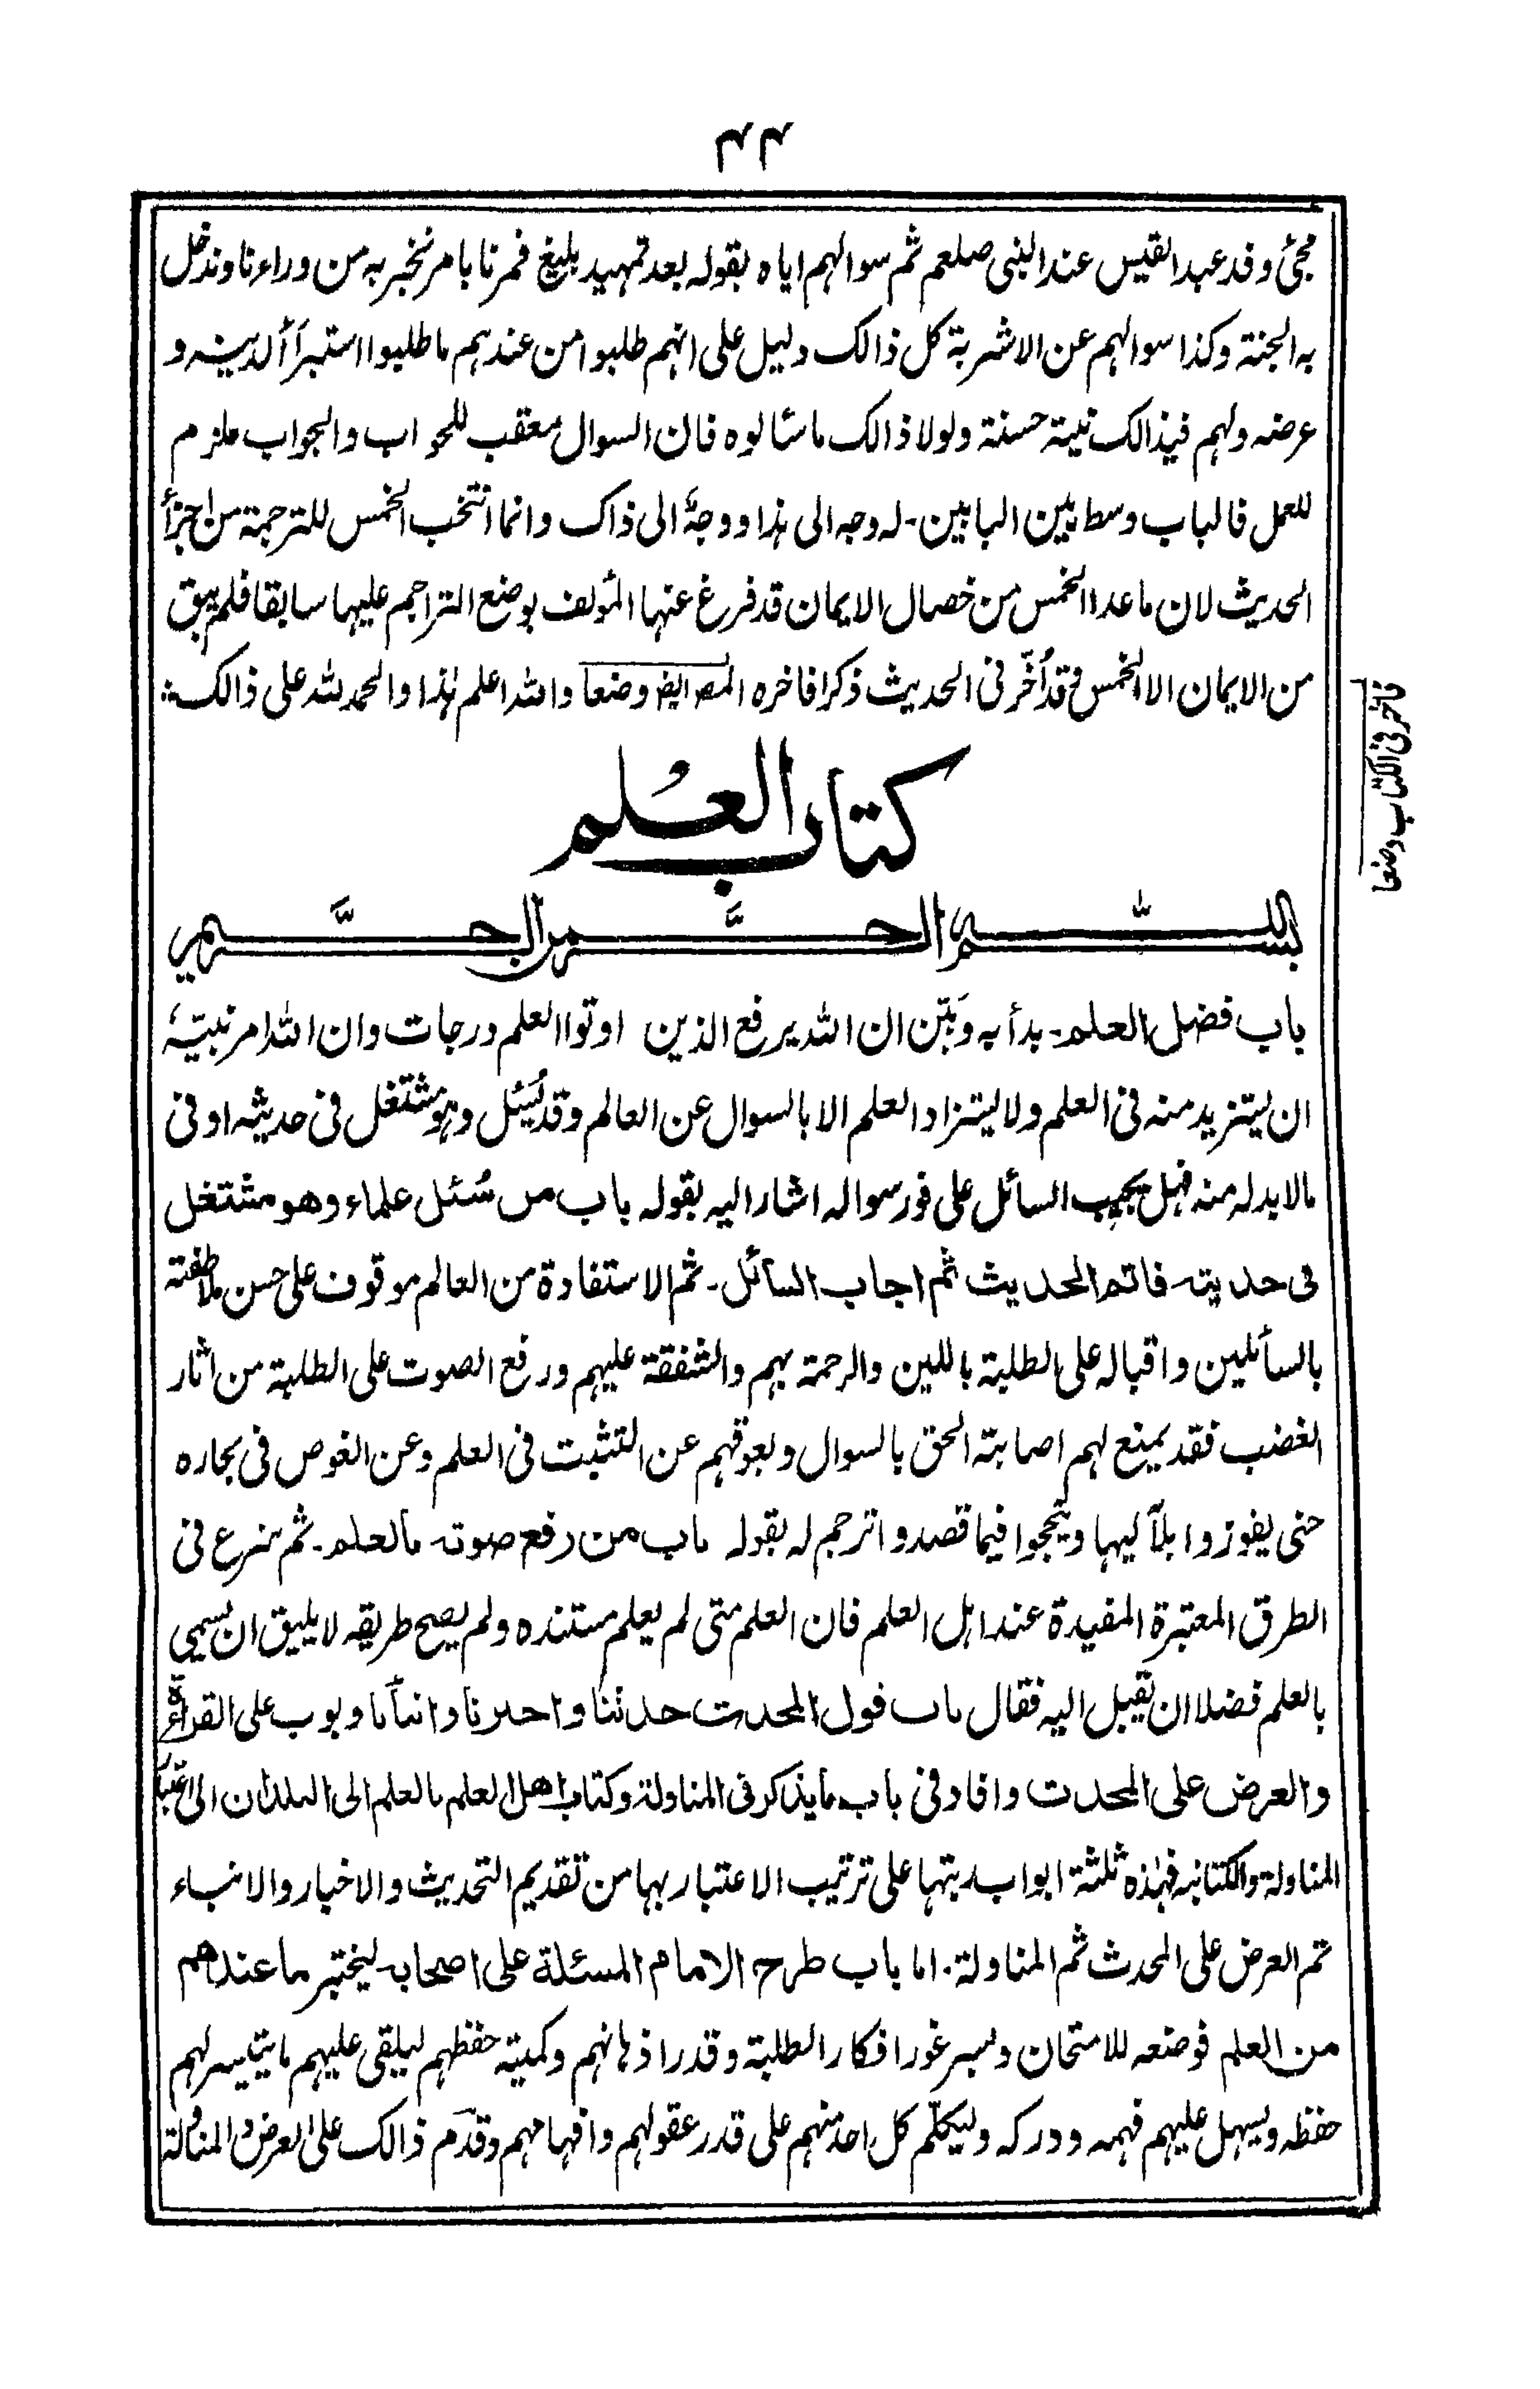 ۴۴
مجئ وفد عبد القيس عند النبى صلعم ثم سوالہم اياہ بقولہ بعد تمہيد بليغ فمرنا بامر نخبر بہ من وراءنا وندخل
بہ الجنۃ وكذا سوالہم عن الاشربۃ كل ذالك دليل على انہم طلبوا من عندہم ما طلبوا استبرأ ألدينہ و
عرضہ ولہم فيذالك نيۃ حسنۃ ولولا ذالك ما سٔالوہ فان السوال معقب للجواب والجواب ملزم
للعمل فالباب وسط بين البابين۔ لہ وجہ الى ہذا ووجہٌ الى ذاك وانما انتخب الخمس للترجمۃ من اجزأ
الحديث لان ماعدا الخمس من خصال الايمان قد فرغ عنہا المٔولف بوضع التراجم عليہا سابقا فلم يبق
من الايمان الا الخمس و قد اُخّر فى الحديث ذكرا فاخرہ المصـ ايضـ وضعا واللہ اعلم ہٰذا والحمد للہ على ذالك
فاخر فى الكتاب وضعا
كتاب العلم
بسم الله الرحمن الرحيم
باب فضل العلم۔ بدأ بہ وَبيّن ان اللہ يرفع الذين اوتوا العلم درجات وان اللہ امر نبيّہٗ
ان يتزيد منہ فى العلم ولا يتزاد العلم الا بالسوال عن العالم وقد يُسئل وہو مشتغل فى حديثہ او فى
مالابد لہ منہ فہل يجيب السائل على فور سوالہ اشار اليہ بقولہ باب من سُئل علماء وهو مشتغل
فى حديثہ فاتم الحديث ثم اجاب السآئل۔ ثم الاستفادۃ من العالم موقوف على حسن ملاطفتہ
بالسأئلين واقبالہ على الطلبۃ باللين والرحمۃ بہم والشفقۃ عليہم ورفع الصوت على الطلبۃ من اثار
الغضب فقد يمنع لہم اصابۃ الحق بالسوال ويعوقہم عن التثبت فى العلم وعن الغوص فى بحارہ
حتى يفوزوا بلآليہا وينجحوا فيما قصدوا ترجم لہ بقولہ باب من رفع صوتہ بالعلم۔ ثم شرع فى
الطرق المعتبرۃ المفيدۃ عند اہل العلم فان العلم متى لم يعلم مستندہ ولم يصح طريقہ لا يليق ان يسمى
بالعلم فضلا ان يقبل اليہ فقال باب قول المحدث حدثنا واخبرنا وانبأنا وبوب على القراءۃ
والعرض على المحدث وافاد فى باب ما يذكر فى المناولۃ وكتاب اهل العلم بالعلم الى البلدان الى اعتبار
المناولۃ والكتابۃ فہٰذہ ثلثۃ ابواب رتبہا على ترتيب الاعتبار بہا من تقديم التحديث والاخبار والانباء
ثم العرض على المحدث ثم المناولۃ۔ اما باب طرح الامام المسئلۃ على اصحابہ ليختبر ما عندهم
من العلم فوضعہ للامتحان ولسبر غور افكار الطلبۃ وقدر اذہانہم وكميۃ حفظہم ليلقى عليہم ما يتيسر لہم
حفظہ ويسہل عليہم فہمہ ودركہ وليكلّم كل احد منہم على قدر عقولہم وافہامہم وقدّم ذالك على العرض و المناولۃ